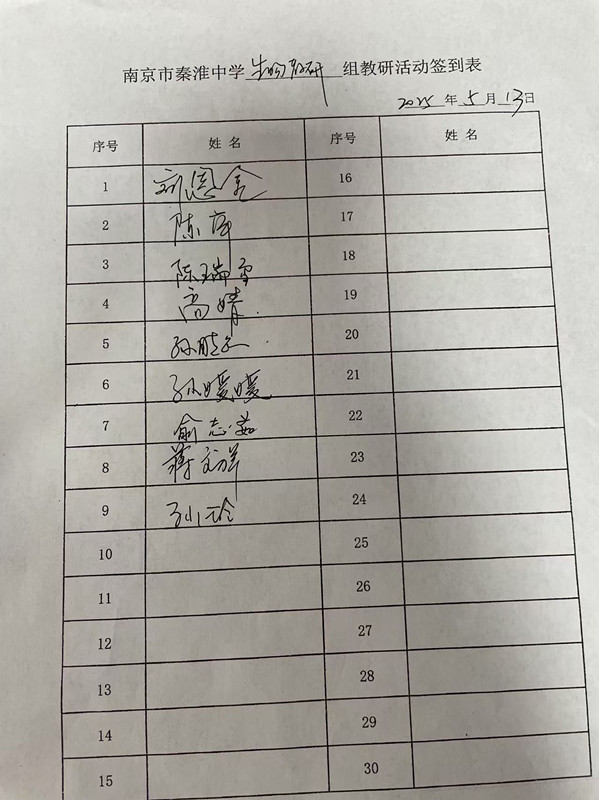 南京市秦淮中学 生物教研 组教研活动签到表
2025 年 5 月 13 日
序号 姓名 序号 姓名
1 刘恩金 16
2 陈 17
3 陈瑞雪 18
4 高婧 19
5 孙 20
6 孙媛媛 21
7 俞志茹 22
8 蒋文洋 23
9 孙玲 24
10 25
11 26
12 27
13 28
14 29
15 30